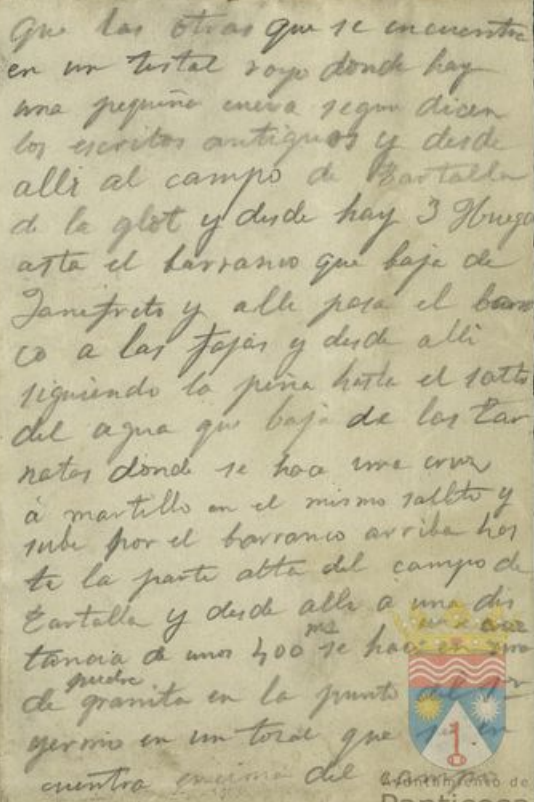 que las otras que se encuentra
en un tosal royo donde hay
una pequeña cueva segun dicen
los escritos antiguos y desde
alli al campo de Zartalla
de la glot y desde hay 3
asta el barranco que baja de
y alli pasa el barran
co a las fajas y desde alli
siguiendo la peña hasta el salto
del agua que baja de las Tar
natas donde se hace una cruz
á martillo en el mismo saltito y
sube por el barranco arriba has
ta la parte alta del campo de
Zartalla y desde alli a una dis
tancia de unos 400 ms se hace
de piedra granita en la punta del
en un tosal que se en
cuentra encima del campo
Ayuntamiento de